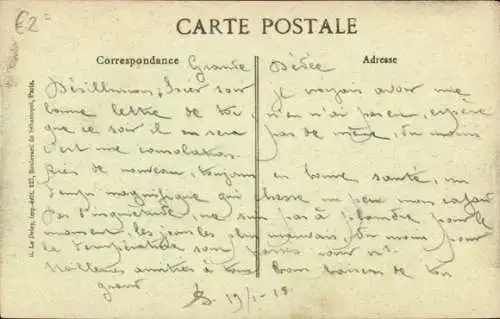 £2=
CARTE POSTALE
Correspondance
Adresse
Grande Dédée
Désillusion, hier soir je croyais avoir une
bonne lettre de toi, n'en n'ai pas eu, espère
que ce soir il en sera pas de même, du moins
c'est une consolation.
Rien de nouveau, toujours en bonne santé, un
temps magnifique qui chasse un peu mon cafard
Pas d'inquiétude, ne suis pas à plaindre pour le
moment, les jours les plus mauvais, du moins pour
la température sont
amitiés à tous bons baisers de ton
grand
19/1-18